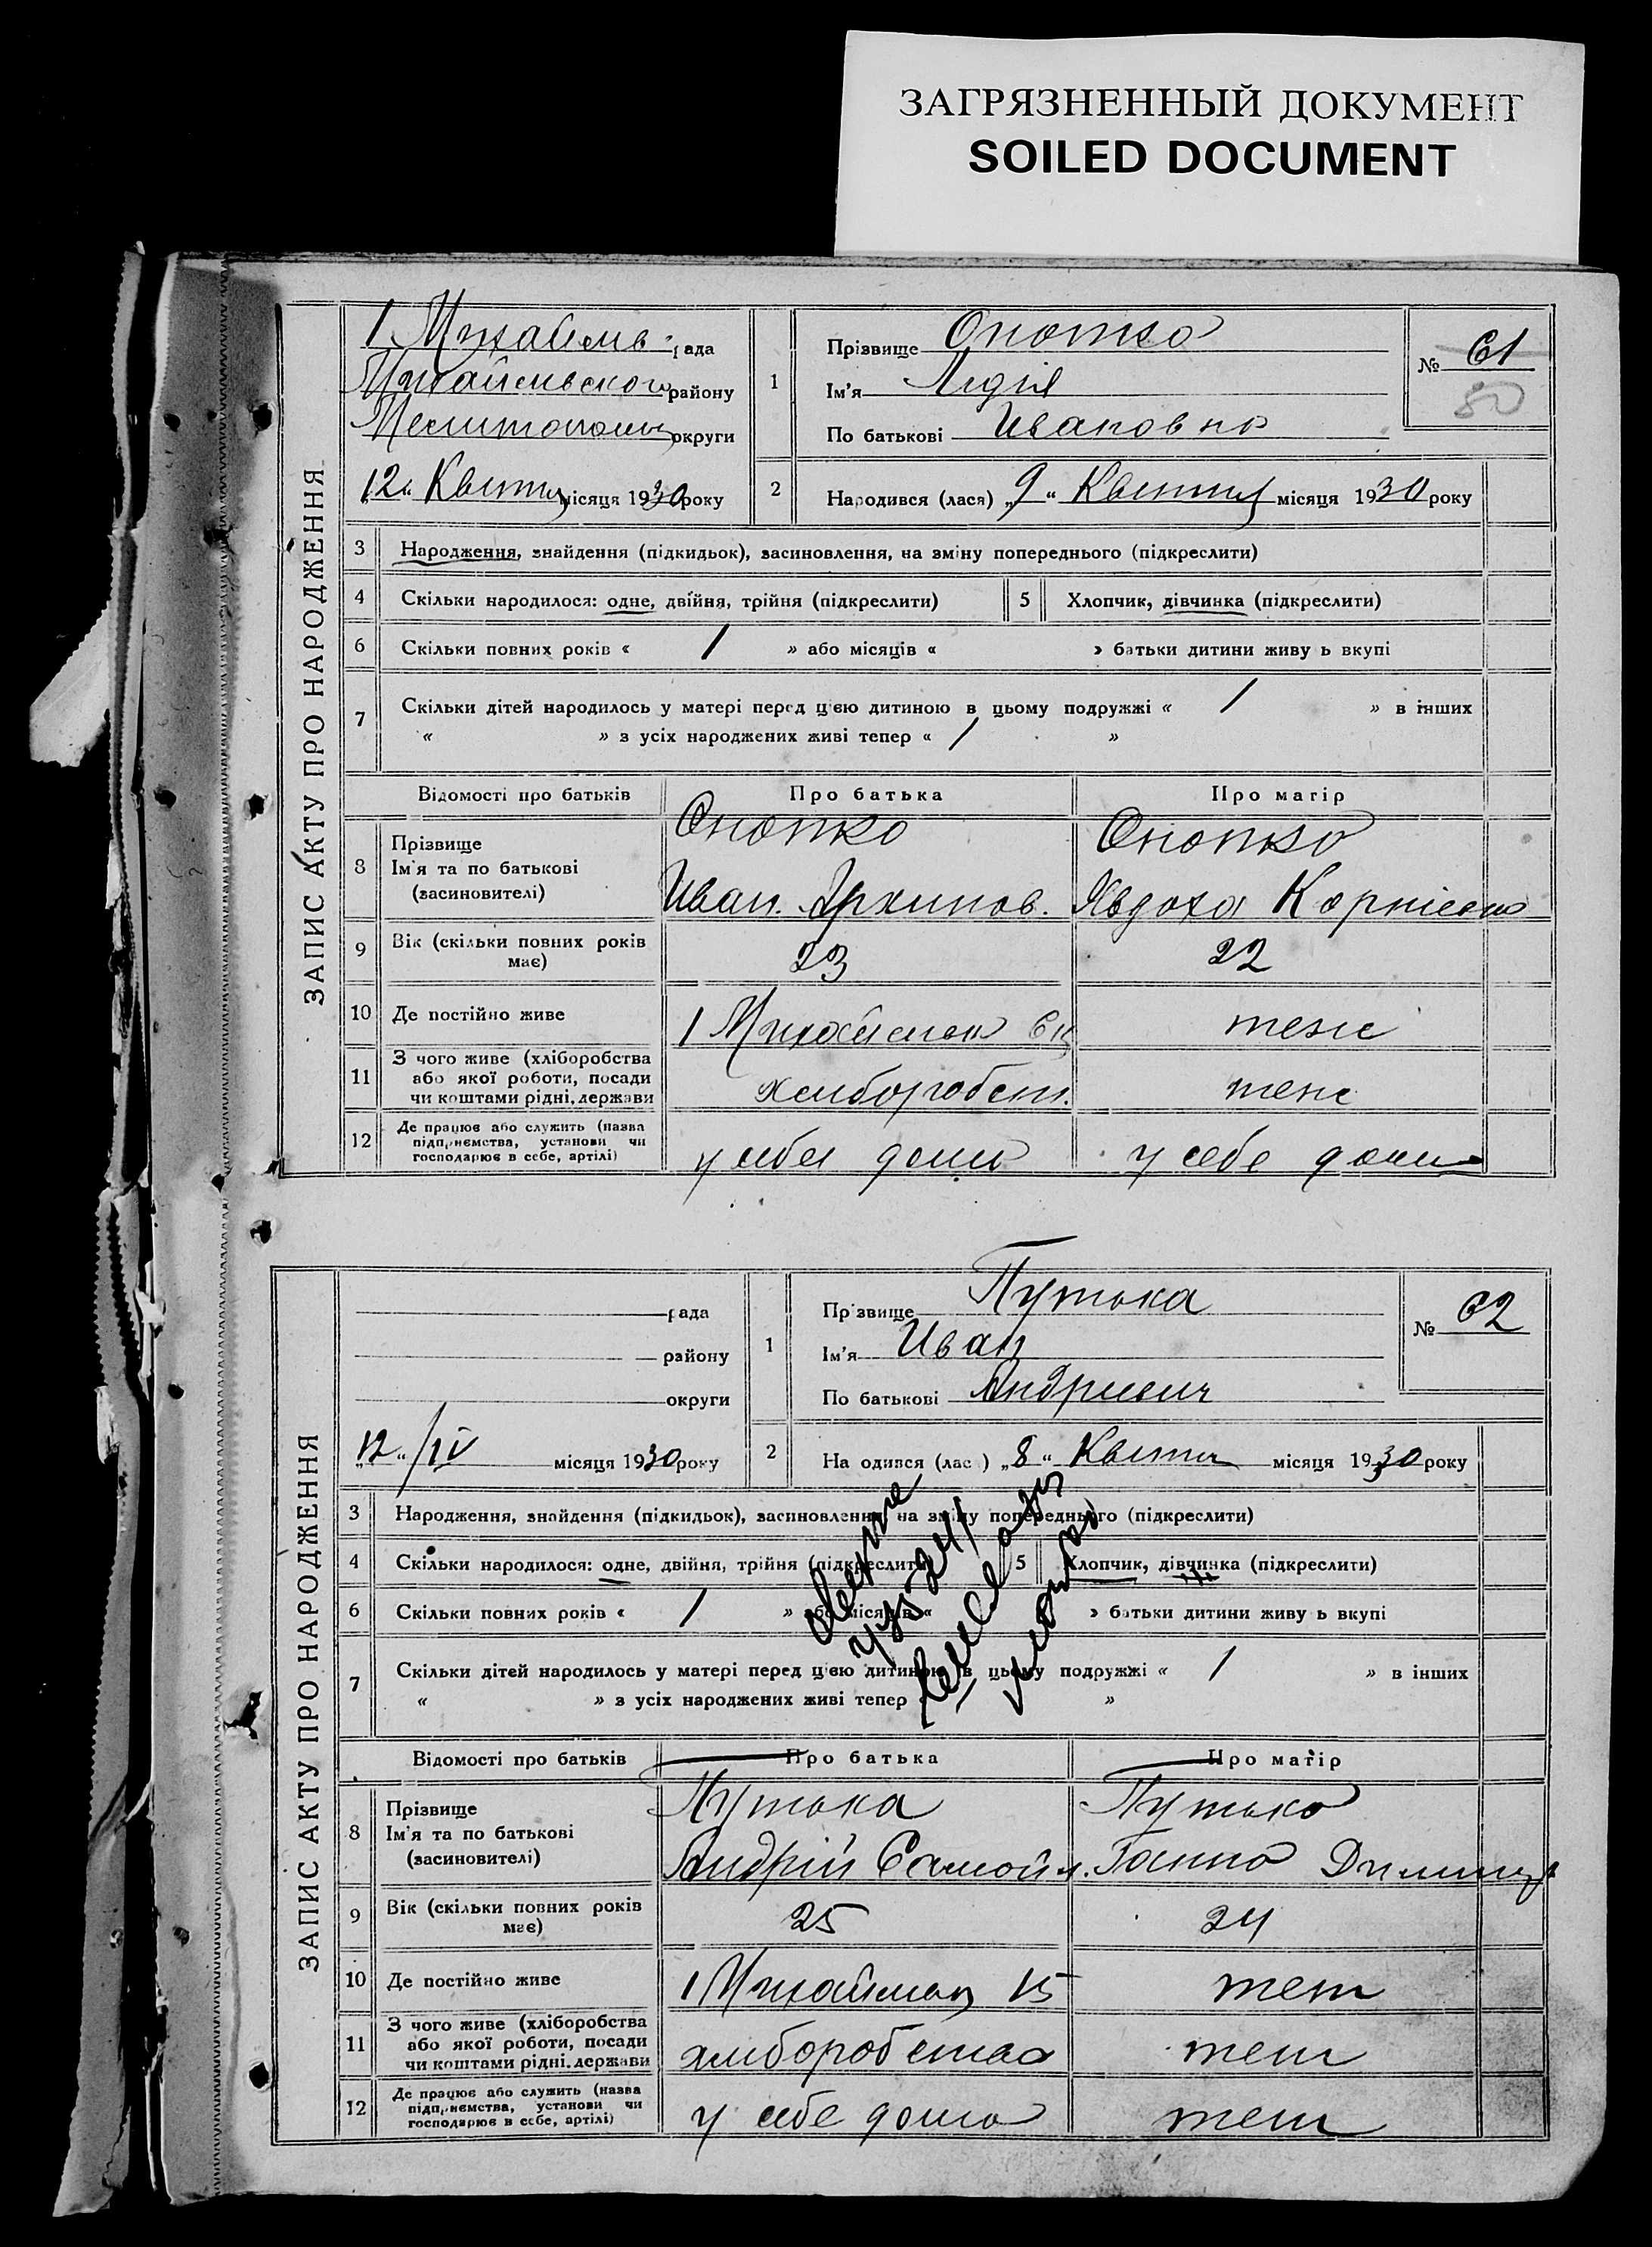 ЗАГРЯЗНЕННЫЙ ДОКУМЕНТ
SOILED DOCUMENT
ЗАПИС АКТУ ПРО НАРОДЖЕННЯ
1 Михайлів рада
району
округи
12 " Квітня місяця 1930 року
1
Прізвище Опотко
Ім'я Лидія
По батькові Ивановна
№ 61
50
2
Народився (лася) „ 9 " Квітня місяця 1930 року
3 Народження, знайдення (підкидьок), засиновлення, на зміну попереднього (підкреслити)
4 Скільки народилося: одне, двійня, трійня (підкреслити) 5 Хлопчик, дівчинка (підкреслити)
6 Скільки повних років « 1 » або місяців « » батьки дитини живу ь вкупі
7 Скільки дітей народилось у матері перед цією дитиною в цьому подружжі « 1 » в інших
« » з усіх народжених живі тепер « 1 »
Відомості про батьків Про батька Про матір
8 Прізвище Опотко Опотко
Ім'я та по батькові Иван Архипов. Явдоха
(засиновителі)
9 Вік (скільки повних років має) 23 22
10 Де постійно живе 1 теж
11 З чого живе (хліборобства або якої роботи, посади чи коштами рідні, держави хлиборобст. теж
12 Де працює або служить (назва підприємства, установи чи господарює в себе, артілі) у себя дома у себе дома
ЗАПИС АКТУ ПРО НАРОДЖЕННЯ
рада
району
округи
12 " /IV місяця 1930 року
1
Прізвище Путька
Ім'я Иван
По батькові Андриевич
№ 62
2
На одився (лас ) „ 8 " Квітня місяця 1930 року
3 Народження, знайдення (підкидьок), засиновлення, на зміну попереднього (підкреслити)
4 Скільки народилося: одне, двійня, трійня (підкреслити) 5 Хлопчик, дівчинка (підкреслити)
6 Скільки повних років « 1 » або місяців « » батьки дитини живу ь вкупі
7 Скільки дітей народилось у матері перед цією дитиною в цьому подружжі « 1 » в інших
« » з усіх народжених живі тепер »
Відомості про батьків Про батька Про матір
8 Прізвище Путька Путько
Ім'я та по батькові Андрій Самойл. Ганна
(засиновителі)
9 Вік (скільки повних років має) 25 24
10 Де постійно живе 1 теж
11 З чого живе (хліборобства або якої роботи, посади чи коштами рідні, держави хлиборобства теж
12 Де працює або служить (назва підприємства, установи чи господарює в себе, артілі) у себе дома теж